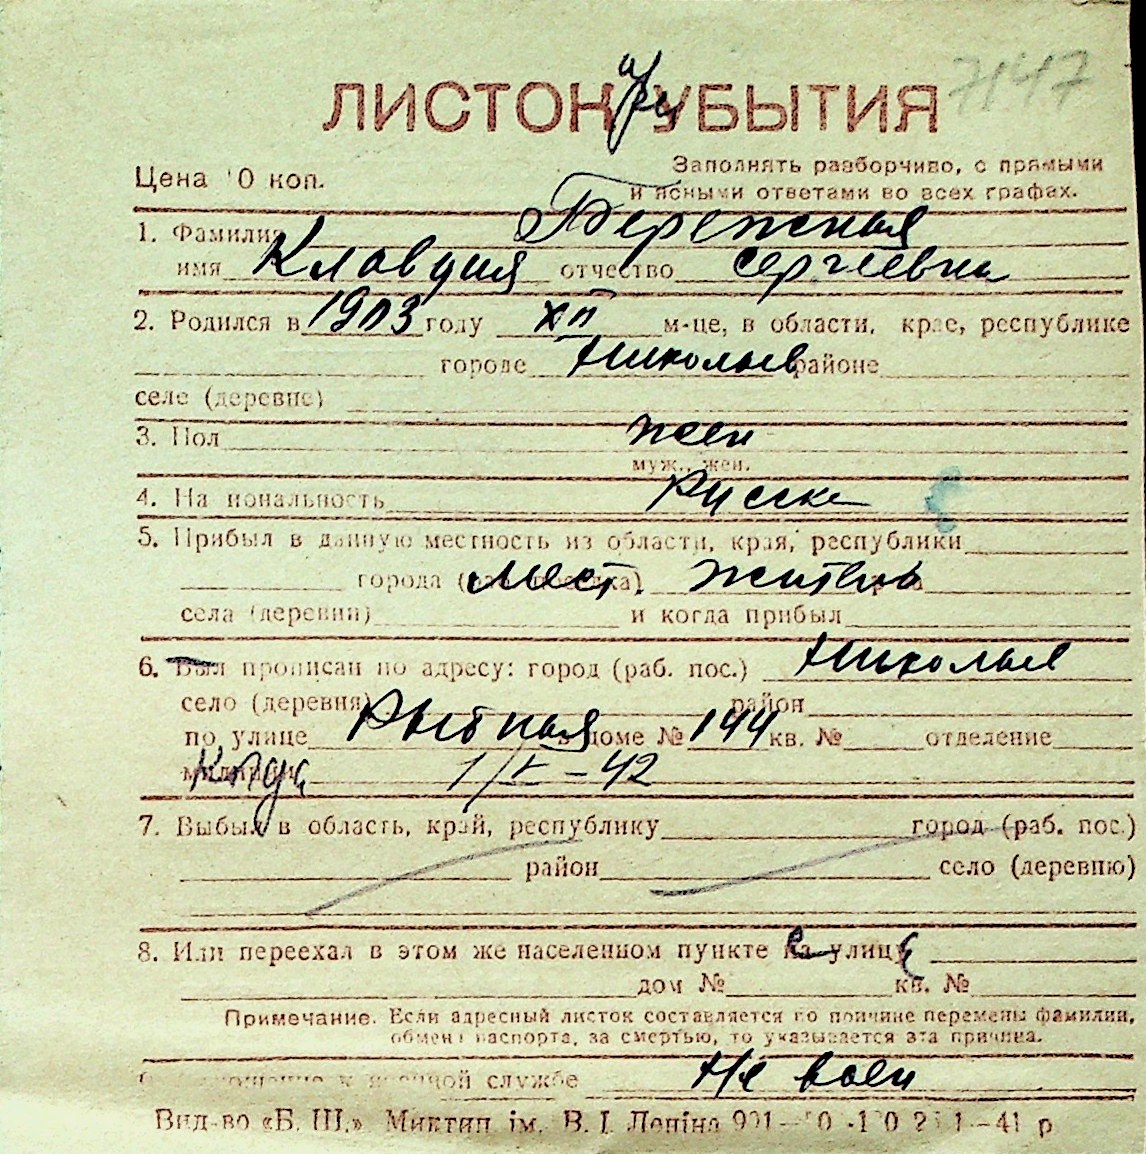 7147
ЛИСТОК при УБЫТИЯ
Цена 10 коп.
Заполнять разборчиво, с прямыми
и ясными ответами во всех графах.
1. Фамилия Бережная
имя Клавдия отчество Сергеевна
2. Родился в 1903 году XII м-це, в области, крае, республике
городе Николаев районе
селе (деревне)
3. Пол жен
муж., жен.
4. Национальность Русская
5. Прибыл в данную местность из области, края, республики
города (раб. поселка) Мест. житель
села (деревни) и когда прибыл
6. Был прописан по адресу: город (раб. пос.) Николаев
село (деревня) район
по улице Рыбная в доме № 144 кв. № отделение
милиции 1/V-42
7. Выбыл в область, край, республику город (раб. пос.)
район село (деревню)
8. Или переехал в этом же населенном пункте на улицу
дом № кв. №
Примечание. Если адресный листок составляется по причине перемены фамилии,
обмена паспорта, за смертью, то указывается эта причина.
отношение к военной службе Не воен
Вид-во «Б. Ш.» Миктип ім. В. І. Леніна